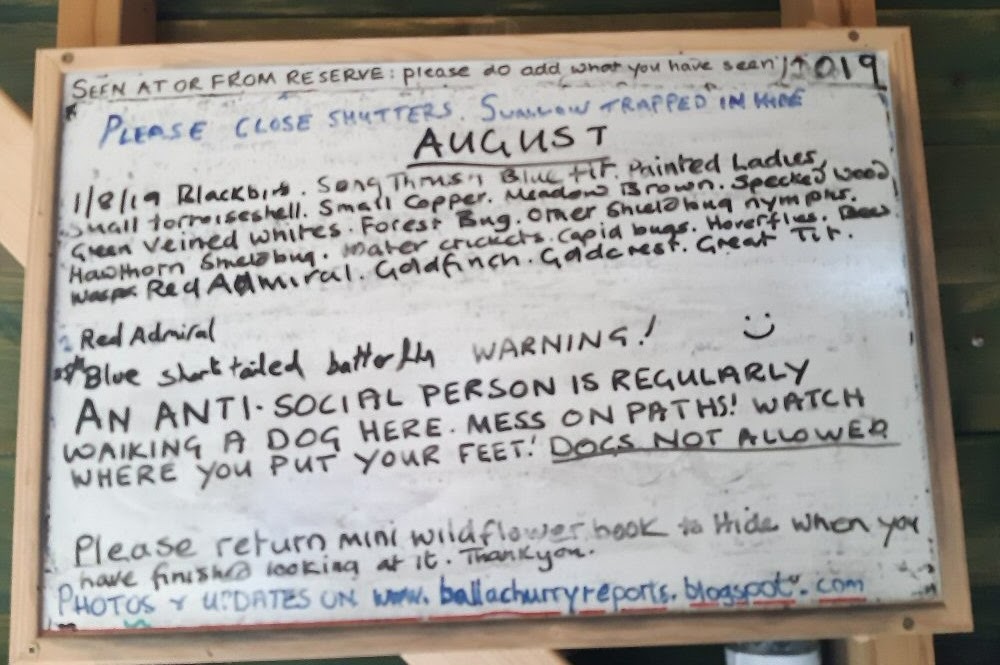 SEEN AT OR FROM RESERVE: please do add what you have seen) 2019
PLEASE CLOSE SHUTTERS. SWALLOW TRAPPED IN HIDE
AUGUST
1/8/19 Blackbird. Song Thrush Blue tit. Painted Ladies,
Small tortoiseshell. Small Copper. Meadow Brown. Specked Wood
Green Veined Whites. Forest Bug. Other Shieldbug nymphs.
Hawthorn Shieldbug. Water crickets. Capid bugs. Hoverflies. Bees
Wasps Red Admiral. Goldfinch. Goldcrest. Great Tit.
Red Admiral
Blue short tailed butterfly WARNING! :)
AN ANTI-SOCIAL PERSON IS REGULARLY
WALKING A DOG HERE. MESS ON PATHS! WATCH
WHERE YOU PUT YOUR FEET! DOGS NOT ALLOWED
Please return mini wildflower book to Hide when you
have finished looking at it. Thankyou.
PHOTOS & UPDATES ON www.ballachurryreports.blogspot.com